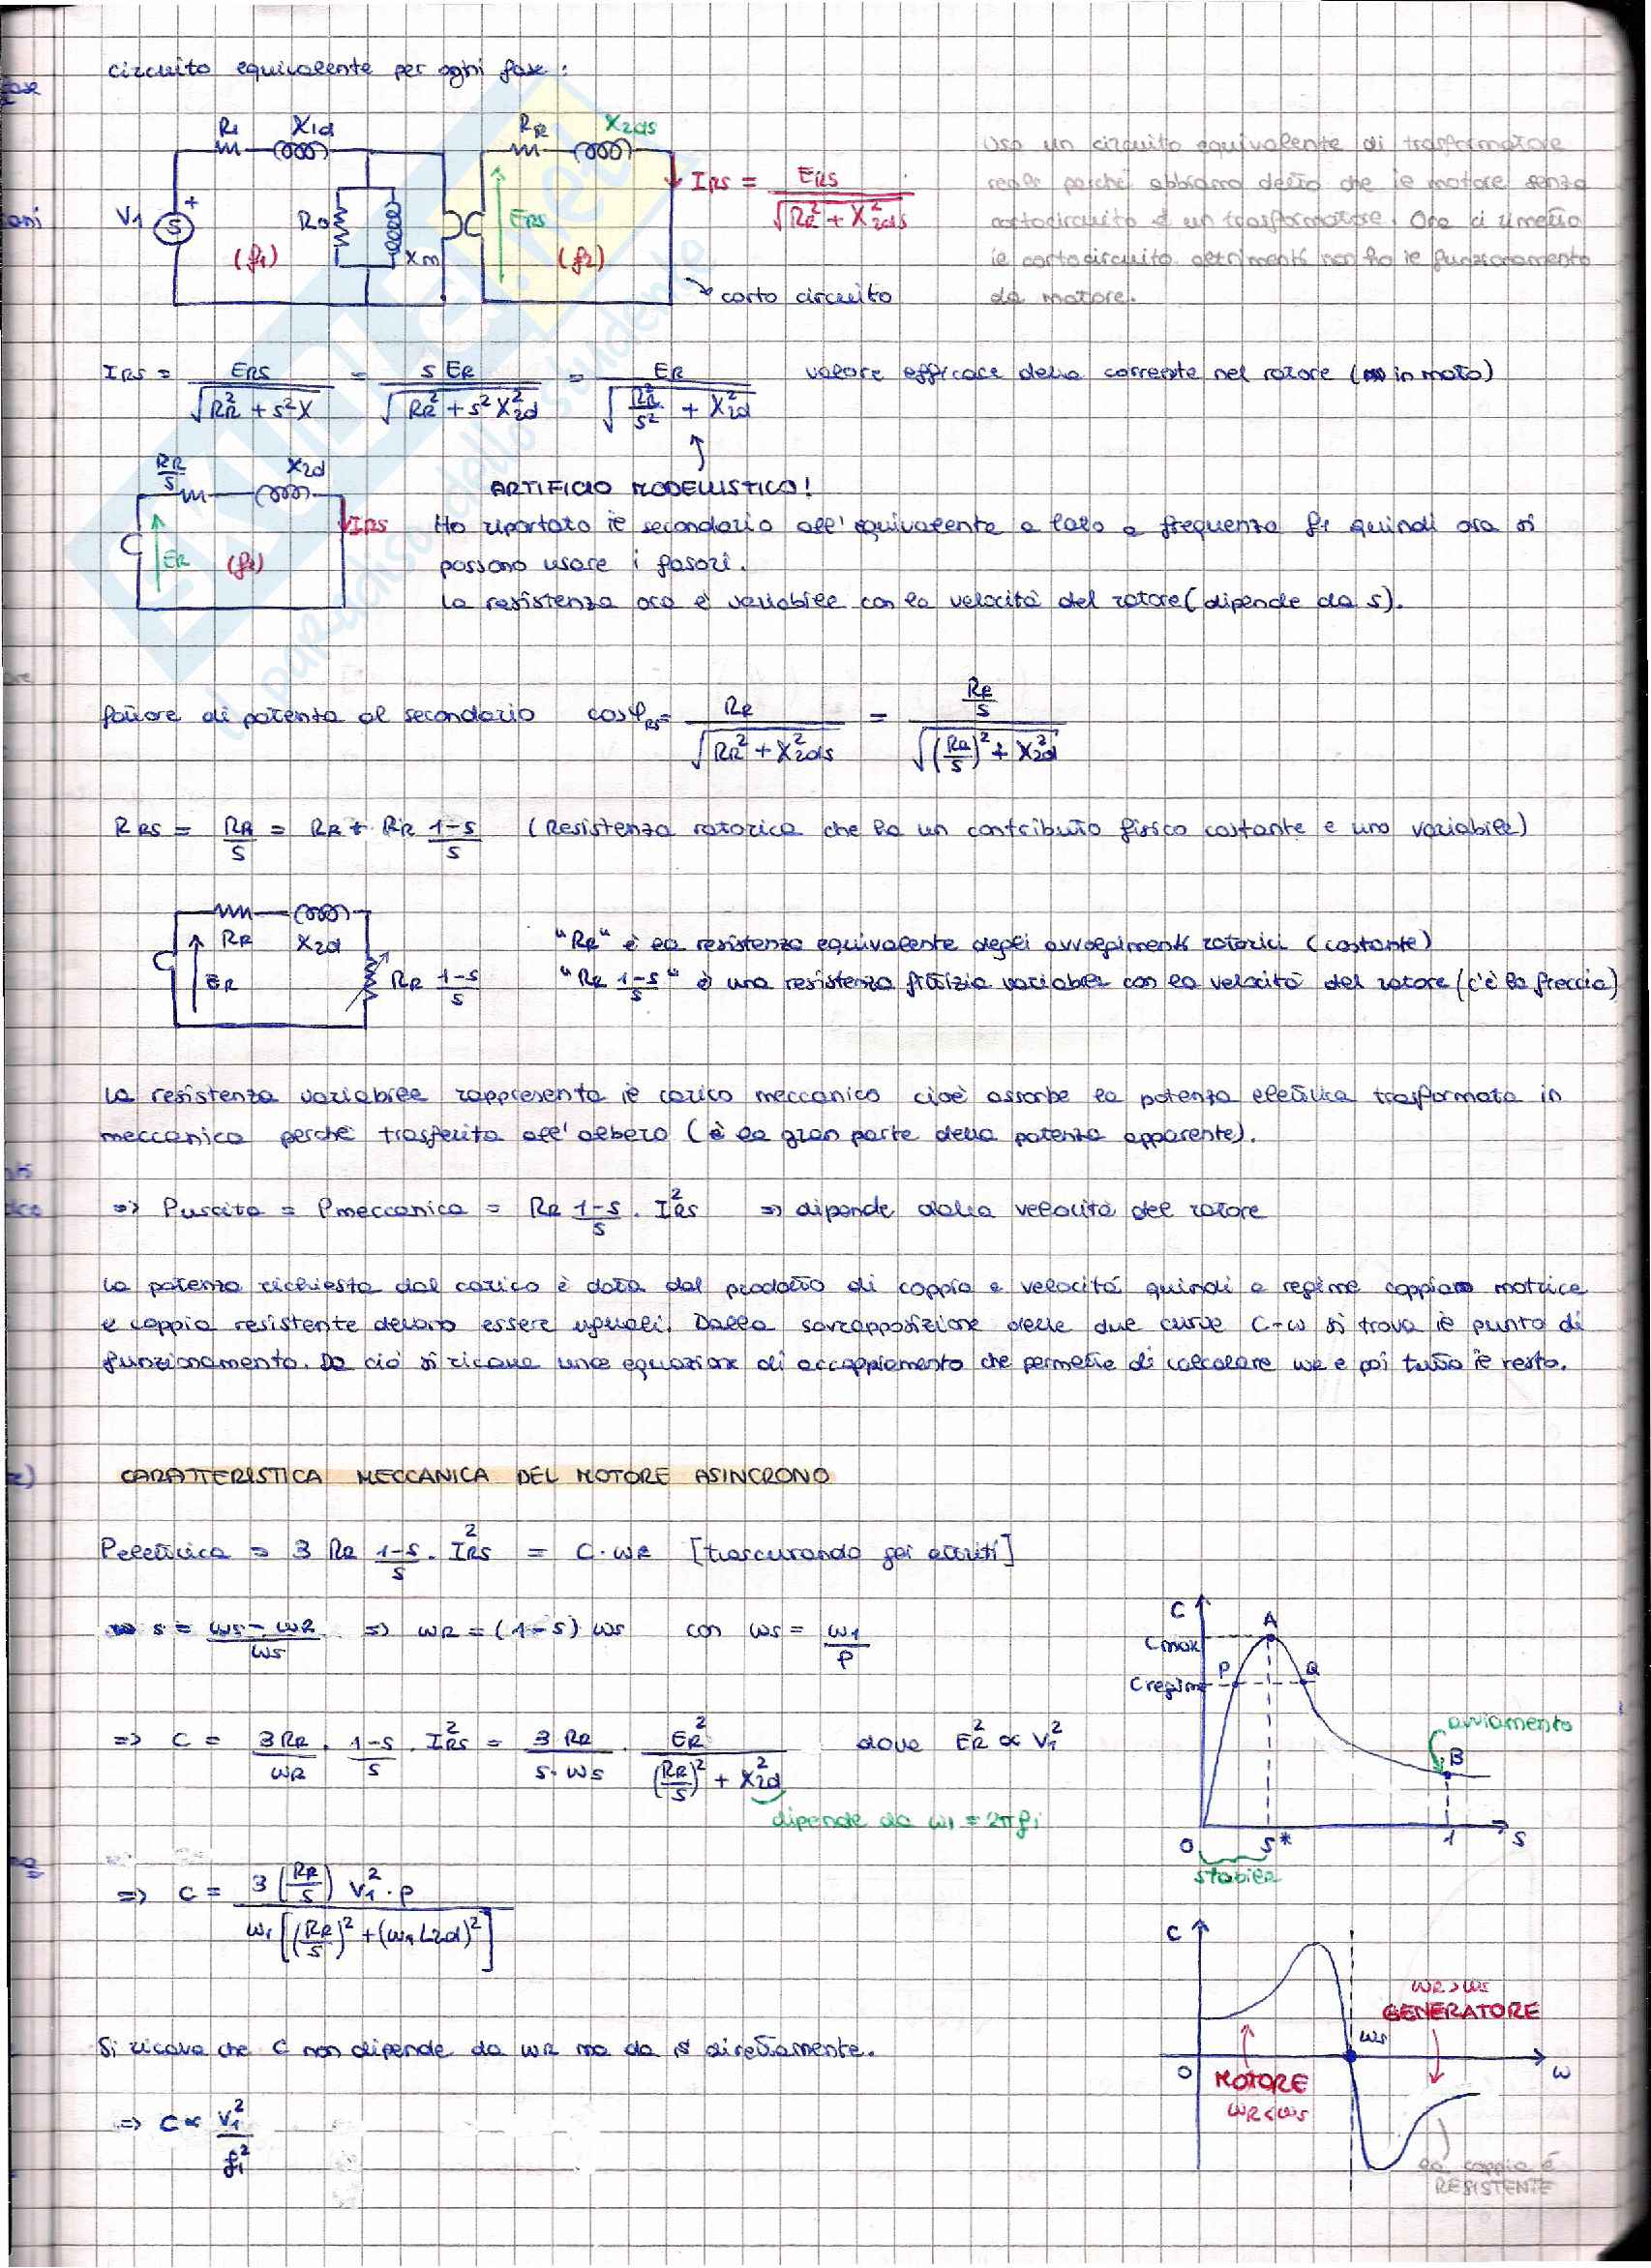 circuito equivalente per ogni fase:
R1 X1d RR X2ds
V1 + S R0 Xm (f1) ERS (f2)
IRS = ERS / √(RR² + X²2ds)
corto circuito
Uso un circuito equivalente di trasformatore
reale perché abbiamo detto che il motore senza
cortocircuito è un trasformatore. Ora ci rimetto
il cortocircuito altrimenti non ho il funzionamento
da motore.
IRS = ERS / √(RR² + s²X) = S ER / √(RR² + s² X²2d) = ER / √(RR²/s² + X²2d) valore efficace della corrente nel rotore (in moto)
RR/s X2d
ER (f1) IRS
ARTIFICIO MODELLISTICO!
Ho riportato il secondario all'equivalente a lato a frequenza f1 quindi ora si
possono usare i fasori.
La resistenza ora è variabile con la velocità del rotore (dipende da s).
fattore di potenza al secondario cosφRS = RR / √(RR² + X²2ds) = (RR/s) / √((RR/s)² + X²2d)
RRS = RR/s = RR + RR (1-s)/s (Resistenza rotorica che ha un contributo fisico costante e uno variabile)
RR X2d
ER RR (1-s)/s
"RR" è la resistenza equivalente degli avvolgimenti rotorici (costante)
"RR (1-s)/s" è una resistenza fittizia variabile con la velocità del rotore (c'è la freccia)
La resistenza variabile rappresenta il carico meccanico cioè assorbe la potenza elettrica trasformata in
meccanica perché trasferita all'albero (è la gran parte della potenza apparente).
=> Puscita = Pmeccanica = RR (1-s)/s · I²RS => dipende dalla velocità del rotore
La potenza richiesta dal carico è data dal prodotto di coppia e velocità quindi a regime coppia motrice
e coppia resistente devono essere uguali. Dalla sovrapposizione delle due curve C-ω si trova il punto di
funzionamento. Da ciò si ricava una equazione di accoppiamento che permette di calcolare ωR e poi tutto il resto.
CARATTERISTICA MECCANICA DEL MOTORE ASINCRONO
Pelettrica = 3 RR (1-s)/s · I²RS = C·ωR [trascurando gli attriti]
s = (ωs - ωR)/ωs => ωR = (1-s) ωs con ωs = ω1/p
=> C = 3RR/ωR · (1-s)/s · I²RS = 3 RR/(s·ωs) · ER² / ((RR/s)² + X²2d) dove ER² ∝ V1²
dipende da ω1 = 2πf1
=> C = 3 (RR/s) V1² · p / ω1[(RR/s)² + (ω1 L2d)²]
Si ricava che C non dipende da ωR ma da s direttamente.
=> C ∝ V1²/f1²
C
A
Cmax
P Q
Cregime
avviamento
B
0 s* 1 s
stabile
C
ωR>ωs
GENERATORE
ωs
0 ω
MOTORE
ωR<ωs
la coppia è
RESISTENTE